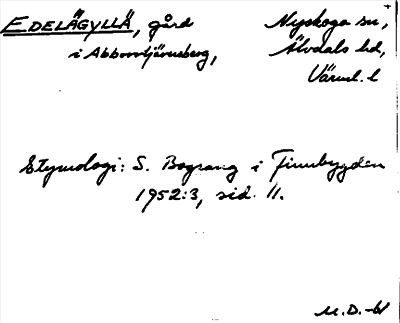 EDELÄGYLLÄ, gård Nyskoga sn,
i Abborrtjärnsberg, Älvdals hd,
Värml. l
Etymologi: S. Bograng i Finnbygden
1952:3, sid. 11.
M.D.-61